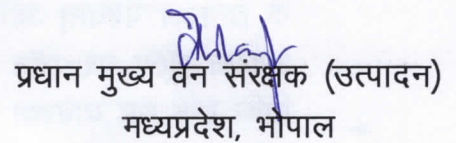 प्रधान मुख्य वन संरक्षक (उत्पादन)
मध्यप्रदेश, भोपाल